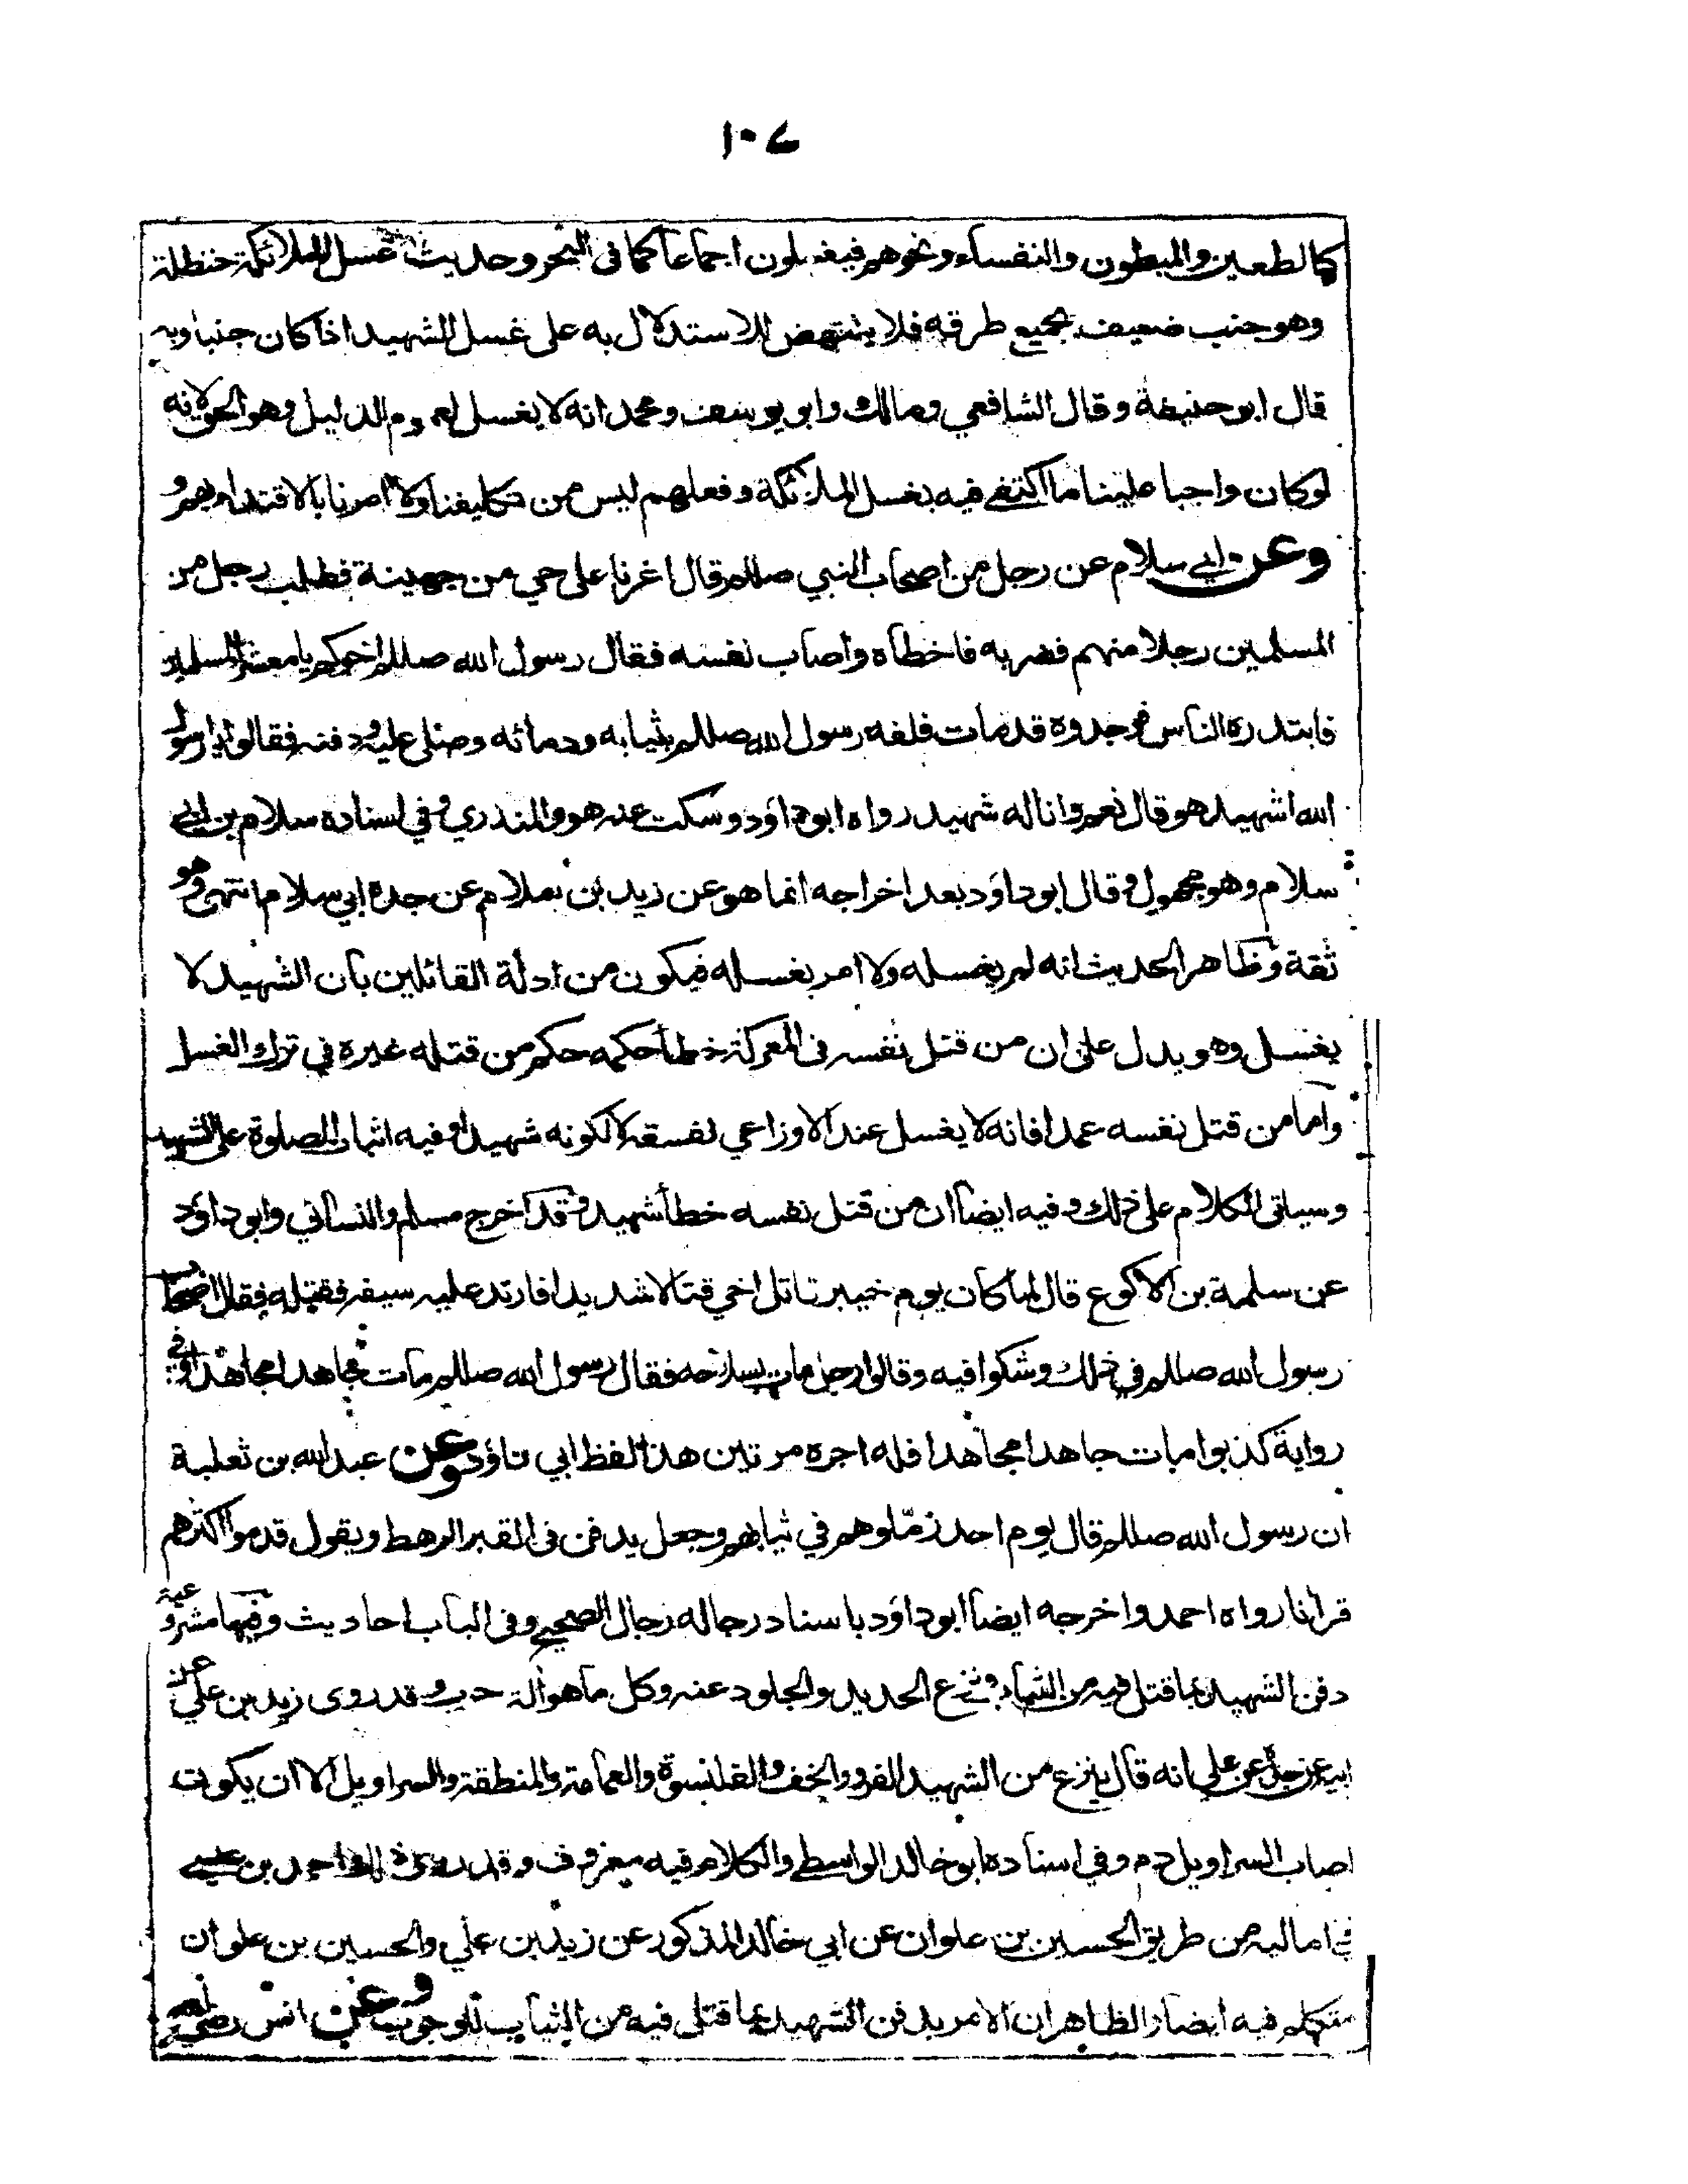 ١٠٤
كالطعين والمبطون والنفساء ونحوهم فيغسلون اجماعا كما فى البحر وحديث غسل الملائكة حنظلة
وهو جنب ضعيف بجميع طرقه فلا ينتهض للاستدلال به على غسل الشهيد اذا كان جنبا وبه
قال ابو حنيفة وقال الشافعي ومالك وابو يوسف ومحمد انه لا يغسل لعموم الدليل وهو الحق لانه
لو كان واجبا علينا ما اكتفے فيه بغسل الملائكة وفعلهم ليس من تكليفنا ولا امرنا بالاقتداء بهم و
وعن ابي سلام عن رجل من اصحاب النبي صللم قال اغرنا على حي من جهينة فطلب رجل من
المسلمين رجلا منهم فضربه فاخطأه واصاب نفسه فقال رسول الله صللم اخوكم يا معشر المسلمين
فابتدره الناس فوجدوه قد مات فلفه رسول الله صللم بثيابه ودمائه وصلى عليه ودفنه فقالوا يا رسول
الله اشهيد هو قال نعم وانا له شهيد رواه ابو داود وسكت عنه هو والمنذري وفي اسناده سلام بن ابي
سلام وهو مجهول وقال ابو داود بعد اخراجه انما هو عن زيد بن سلام عن جده ابي سلام انتهى وهو
ثقة وظاهر الحديث انه لم يغسله ولا امر بغسله فيكون من ادلة القائلين بان الشهيد لا
يغسل وهو يدل على ان من قتل نفسه فى المعركة خطأ حكمه حكم من قتله غيره في ترك الغسل
واما من قتل نفسه عمدا فانه لا يغسل عند الاوزاعي لفسقه لا لكونه شهيدا وفيه اثبات الصلوة على الشهيد
وسياتى الكلام على ذلك وفيه ايضا ان من قتل نفسه خطأ شهيد وقد اخرج مسلم والنسائي وابو داود
عن سلمة بن الاكوع قال لما كان يوم خيبر قاتل اخي قتالا شديدا فارتد عليه سيفه فقتله فقال اصحاب
رسول الله صللم في ذلك وشكوا فيه وقالوا رجل مات بسلاحه فقال رسول الله صللم مات جاهدا مجاهدا وفي
رواية كذبوا مات جاهدا مجاهدا فله اجره مرتين هذا لفظ ابي داؤد وعن عبد الله بن ثعلبة
ان رسول الله صللم قال يوم احد زمّلوهم في ثيابهم وجعل يدفن فى القبر الرهط ويقول قدموا اكثرهم
قرانا رواه احمد واخرجه ايضا ابو داود باسناد رجاله رجال الصحيح وفى الباب احاديث وفيها مشروعية
دفن الشهيد بما قتل فيه من الثياب ونزع الحديد والجلود عنه وكل ما هو الة حرب وقد روى زيد بن علي عن
ابيه عن جده عن علي انه قال ينزع من الشهيد الفرو والخف والقلنسوة والعمامة والمنطقة والسراويل الا ان يكون
اصاب السراويل دم وفي اسناده ابو خالد الواسطي والكلام فيه معروف وقد روى احمد بن عيسى
في اماليه من طريق الحسين بن علوان عن ابي خالد المذكور عن زيد بن علي والحسين بن علوان
متكلم فيه ايضا والظاهر ان الامر بدفن الشهيد بما قتل فيه من الثياب للوجوب وعن انس رضي